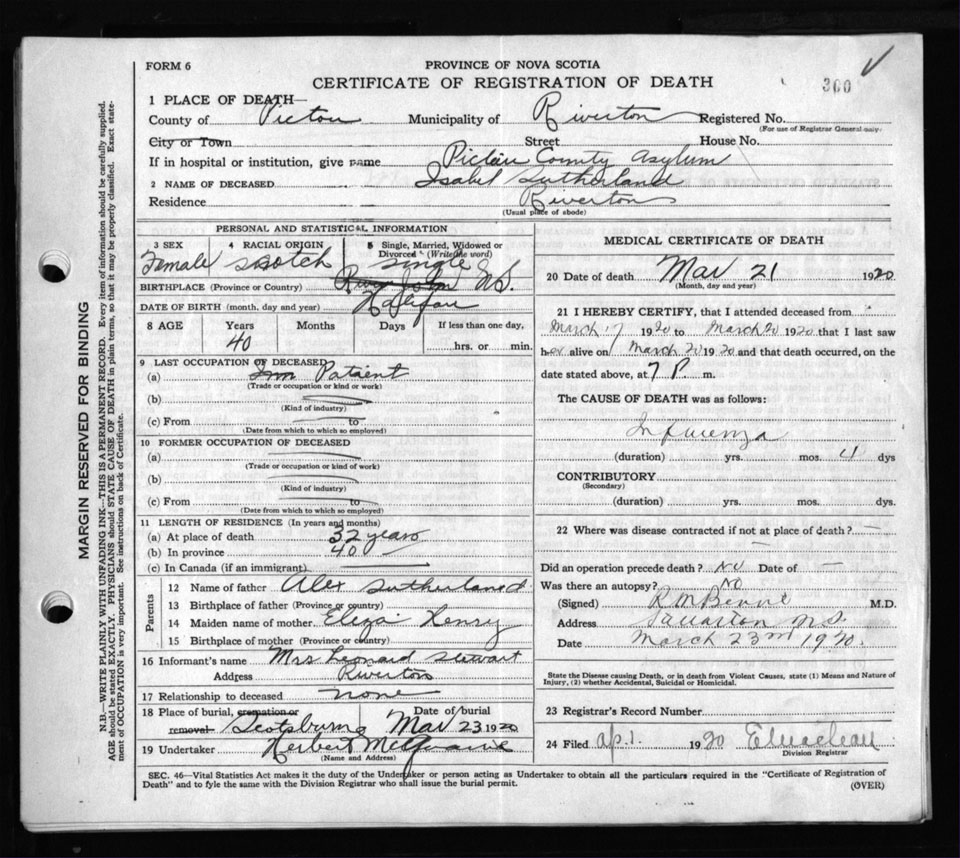 FORM 6
PROVINCE OF NOVA SCOTIA
CERTIFICATE OF REGISTRATION OF DEATH
300
1 PLACE OF DEATH—
County of Pictou Municipality of Riverton Registered No.
(For use of Registrar General only.
City or Town Street House No.
If in hospital or institution, give name Pictou County Asylum
2 NAME OF DECEASED Isabel Sutherland
Residence Riverton
(Usual place of abode)
PERSONAL AND STATISTICAL INFORMATION
3 SEX 4 RACIAL ORIGIN 5 Single, Married, Widowed or Divorced (Write the word)
Female Scotch Single
BIRTHPLACE (Province or Country) River John N.S.
DATE OF BIRTH (month, day and year)
8 AGE Years Months Days If less than one day,
40 hrs. or min.
9 LAST OCCUPATION OF DECEASED
(a) Patient
(Trade or occupation or kind or work)
(b)
(Kind of industry)
(c) From to
(Date from which to which so employed)
10 FORMER OCCUPATION OF DECEASED
(a)
(Trade or occupation or kind of work)
(b)
(Kind of industry)
(c) From to
(Date from which to which so employed)
11 LENGTH OF RESIDENCE (In years and months)
(a) At place of death 32 years
(b) In province 40 —
(c) In Canada (if an immigrant)
Parents
12 Name of father Alex Sutherland
13 Birthplace of father (Province or country)
14 Maiden name of mother Eliza Henry
15 Birthplace of mother (Province or country)
16 Informant's name Mrs Leonard Stewart
Address Riverton
17 Relationship to deceased none
18 Place of burial, cremation or removal Scotsburn Date of burial Mar 23 1920
19 Undertaker Herbert
(Name and Address)
MEDICAL CERTIFICATE OF DEATH
20 Date of death Mar 21 1920
(Month, day and year)
21 I HEREBY CERTIFY, that I attended deceased from
March 17 1920 to March 20 1920 that I last saw
her alive on March 20 1920 and that death occurred, on the
date stated above, at 7 P m.
The CAUSE OF DEATH was as follows:
Influenza
(duration) yrs. mos. 4 dys
CONTRIBUTORY
(Secondary)
(duration) yrs. mos. dys.
22 Where was disease contracted if not at place of death? —
Did an operation precede death? No Date of —
Was there an autopsy? No
(Signed) M.D.
Address N.S.
Date March 23rd 1920.
State the Disease causing Death, or in death from Violent Causes, state (1) Means and Nature of
Injury, (2) whether Accidental, Suicidal or Homicidal.
23 Registrar's Record Number
24 Filed Ap. 1. 1920
Division Registrar
SEC. 46—Vital Statistics Act makes it the duty of the Undertaker or person acting as Undertaker to obtain all the particulars required in the "Certificate of Registration of
Death" and to fyle the same with the Division Registrar who shall issue the burial permit.
(OVER)
MARGIN RESERVED FOR BINDING
N.B.—WRITE PLAINLY WITH UNFADING INK—THIS IS A PERMANENT RECORD. Every item of information should be carefully supplied.
AGE should be stated EXACTLY. PHYSICIANS should STATE CAUSE OF DEATH in plain terms, so that it may be properly classified. Exact state-
ment of OCCUPATION is very important. See instructions on back of Certificate.